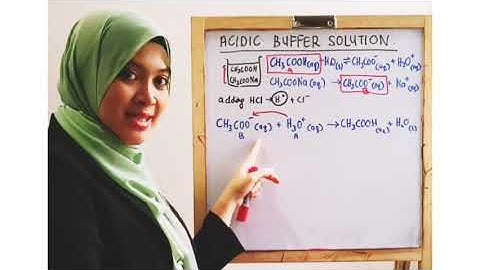 ACIDIC BUFFER SOLUTION.
CH₃COOH
CH₃COONa
CH₃COOH(aq) + H₂O(l) ⇌ CH₃COO⁻(aq) + H₃O⁺(aq)
A
CH₃COONa(aq) → CH₃COO⁻(aq) + Na⁺(aq)
B
adding HCl → H⁺ + Cl⁻
CH₃COO⁻(aq) + H₃O⁺(aq) → CH₃COOH(aq) + H₂O(l)
B A